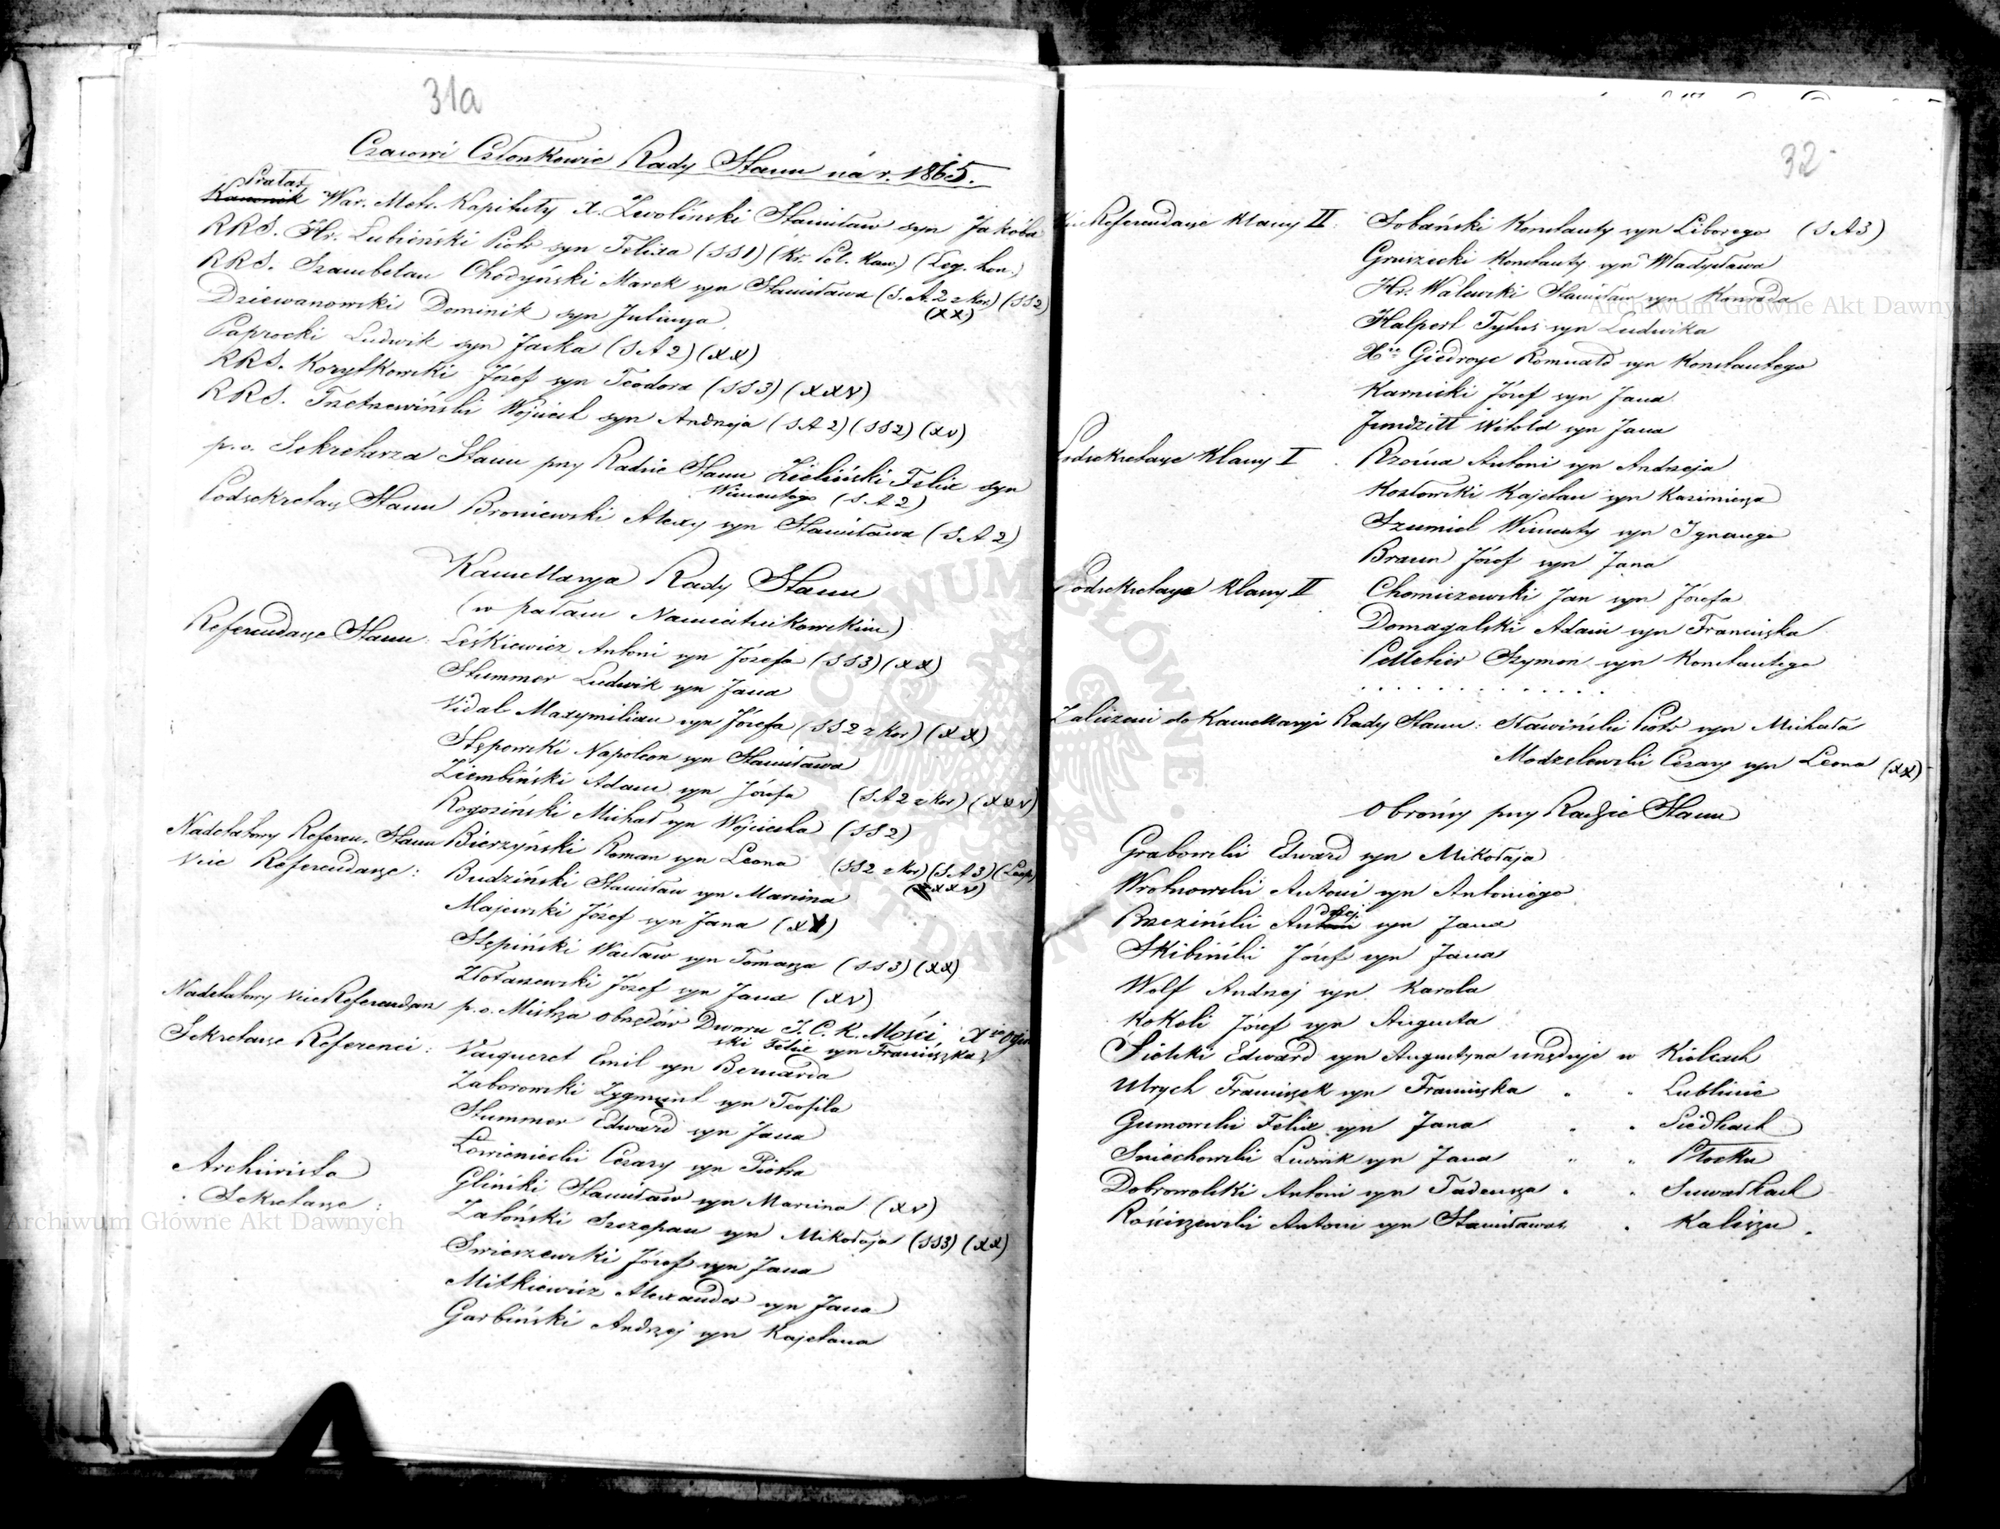 31a
Czasowi Członkowie Rady Stanu na r. 1865.
Prałat
Kanonik War. Metr. Kapituły X. Zwoliński Stanisław syn Jakóba
RRS. Hr. Łubieński Piotr syn Felixa (SS1) (Kr. Pol. Kaw.) (Leg. hon.)
RRS. Szambelan Chodyński Marek syn Stanisława (S.A.2 z Kor) (SS2)
(XX)
Dziewanowski Dominik syn Juliusza
Paprocki Ludwik syn Jacka (SA2) (XX)
RRS. Korytkowski Józef syn Teodora (SS3) (XXV)
RRS. Trzetrzewiński Wojciech syn Andrzeja (SA2) (SS2) (XV)
p.o. Sekretarza Stanu przy Radzie Stanu Zieliński Felix syn
Wincentego (S.A2)
Podsekretarz Stanu Broniewski Alexy syn Stanisława (SA2)
Kancellarya Rady Stanu
(w pałacu Namiestnikowskim)
Referendarze Stanu: Leśkiewicz Antoni syn Józefa (SS3) (XX)
Stummer Ludwik syn Jana
Vidal Maxymilian syn Józefa (SS2 z Kor) (XX)
Stępowski Napoleon syn Stanisława
Ziembiński Adam syn Józefa (SA2 z Kor) (XXV)
Rogoziński Michał syn Wojciecha (SS2)
Nadetatowy Referen. Stanu Bierzyński Roman syn Leona (SS2 z Kor) (SA3)
Vice Referendarze: Budziński Stanisław syn Marcina (XXV)
Majewski Józef syn Jana (XV)
Stępiński Wacław syn Tomasza (SS3) (XX)
Złotaszewski Józef syn Jana (XV)
Nadetatowy Vice Referendarz p.o. Mistrza obrzędów Dworu J.C.K. Mości Xże Ogiń
ski Felix syn Franciszka
Sekretarze Referenci: Vacqueret Emil syn Bernarda
Zaborowski Zygmunt syn Teofila
Stummer Edward syn Jana
Łowieniecki Cezary syn Piotra
Archiwista Gliński Stanisław syn Marcina (XV)
Sekretarze: Załoński Szczepan syn Mikołaja (SS3) (XX)
Swieszewski Józef syn Jana
Mitkiewicz Alexander syn Jana
Garbiński Andrzej syn Kajetana
32
Vice Referendarze klassy II: Sobański Konstanty syn Liborego (SA3)
Gruszecki Konstanty syn Władysława
Hr. Walewski Stanisław syn Konrada
Halpert Tytus syn Ludwika
Xże Giedroyc Romuald syn Konstantego
Karnicki Józef syn Jana
Jundziłł Witold syn Jana
Podsekretarze klassy I. Rzońca Antoni syn Andrzeja
Kozłowski Kajetan syn Kazimierza
Szumiel Wincenty syn Ignacego
Braun Józef syn Jana
Podsekretarze klassy II Chomiczewski Jan syn Józefa
Domagalski Adam syn Franciszka
Pelletier Szymon syn Konstantego
. . . . . . . . . . . . .
Zaliczeni do Kancellaryi Rady Stanu: Sławiński Piotr syn Michała
Modzelewski Cezary syn Leona (XX)
Obrońcy przy Radzie Stanu
Grabowski Edward syn Mikołaja
Wrotnowski Antoni syn Antoniego
Brzeziński Andrzej syn Jana
Skibiński Józef syn Jana
Wolf Andrzej syn Karola
Kokeli Józef syn Augusta
Sielski Edward syn Augustyna urzęduje w Kielcach
Ulrych Franciszek syn Franciszka " " Lublinie
Gumowski Felix syn Jana " " Siedlcach
Sniechowski Ludwik syn Jana " " Płocku
Dobrowolski Antoni syn Tadeusza " " Suwałkach
Rościszewski Antoni syn Stanisława " Kaliszu.
Archiwum Główne Akt Dawnych
Archiwum Główne Akt Dawnych
ARCHIWUM GŁÓWNE AKT DAWNYCH